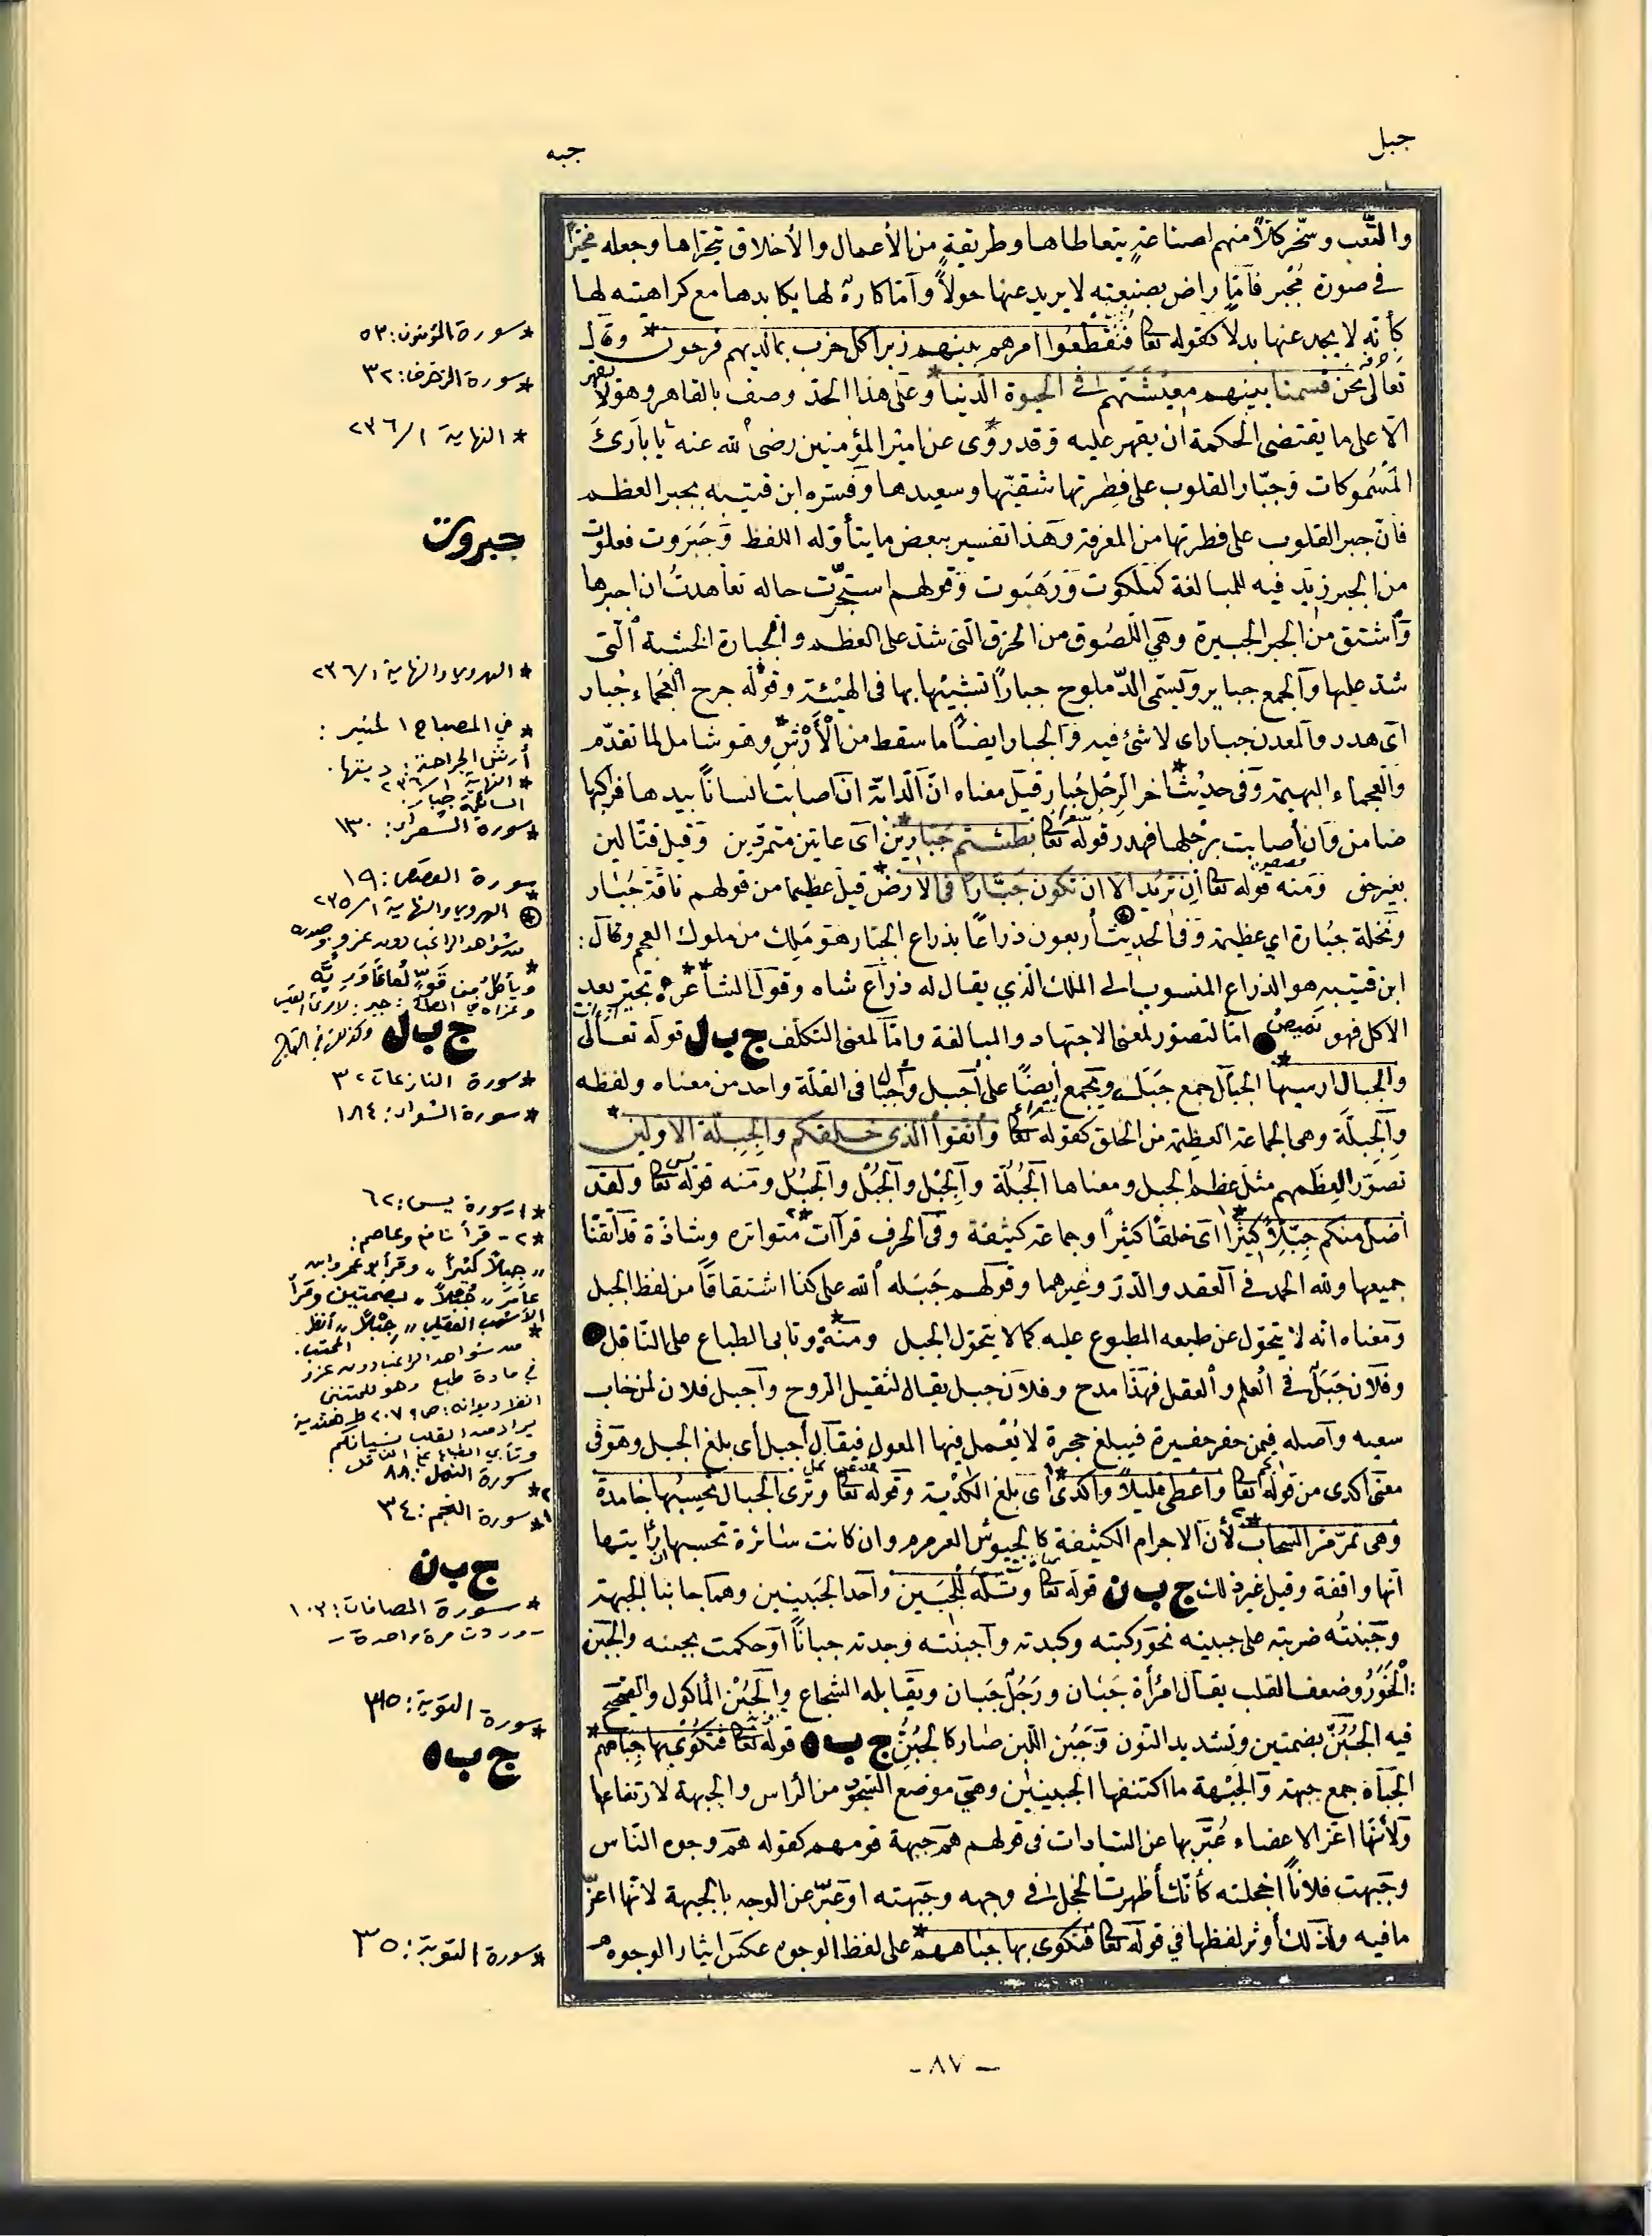 جبل
جبه
والتّعب وسخّر كلاًّ منهم لصناعةٍ يتعاطاها وطريقةٍ من الأعمال والأخلاق يتحرّاها وجعله مخيّراً
في صورة مُجْبر فأمّا راض بصنيعته لا يريد عنها حولاً وأمّا كارهٌ لها يكابدها مع كراهيته لها
كأنّه لا يجد عنها بدلاً كقوله تعا فتقطّعوا امرهم بينهم زبرا كل حزب بما لديهم فرحون* وقال
تعالى نحن قسمنا بينهم معيشتهم في الحيوة الدّنيا* وعلى هذا الحدّ وصف بالقاهر وهو لا يقهر
الّا على ما يقتضي الحكمة ان يقهر عليه وقد روى* عن امير المؤمنين رضى الله عنه يا بارئ
المسْمُوكات وجبّار القلوب على فِطرتها شقيّها وسعيدها وفسّره ابن قتيبه بجبر العظم
فانّ جبر القلوب على فطرتها من المعرفة وهذا تفسير ببعض ما يتأوله اللفظ وجَبَروت فعلوت
من الجبر زيد فيه للمبالغة كملكوت ورَهَبوت وقولهم استجبرت حاله تعاهدتُ ان اجبرها
واشتق من الجبر الجبيرة وهي اللّصُوق من الخرق الّتى شدّ على العظم والجبارة الخشبة الّتى
شدّ عليها والجمع جباير ويسمّى الدّملوج جباراً تشبيهاً بها في الهيئة وقوله جرح العجماء جُبار
اى هدر والمعدن جبار اى لا شئ فيه والجبار ايضاً ما سقط من الْأرْش* وهو شامل لما تقدّم
والعجماء البهيمة وفى حديث* اخر الرِجْل جُبار قيل معناه انّ الدّابّة ان اصابت انساناً بيدها فراكبها
ضامن وان أصابت برْجلها فهدر قوله تعا بطشتم جَبّارين* اى عاتين متمرّدين وقيل قتّالين
بغير حق ومنه قوله تعا ان تريد الا ان تكون جبّارًا في الارض* قيل عظيما من قولهم ناقة جَبّار
ونخلة جبّارة اي عظيمة وفى الحديث أربعون ذراعاً بذراع الجبّار هو مَلِك من ملوك العجم وقال:
ابن قتيبه هو الذراع المنسوب الى الملك الّذي يقال له ذراع شاه وقول الشاعر** تجبّر بعد
الاكل فهو نميصُ امّا لتصوّر لمعنى الاجتهاد والمبالغة وامّا لمعنى التكلّف ج ب ل قوله تعالى
والجبال ارسيها* الجبال جمع جَبَل ويجمع ايضًا على أجبل وأجبال في القلّة واحد من معناه ولفظه
والجِبِلّة وهى الجماعة العظيمة من الخلق كقوله تعا واتقوا الذي خلقكم والجِبِلّة الاولين*
تصوّر العِظمهم مثل عِظم الجبل ومعناها الجُبُلّة والجِبْل والجُبْل والجُبُلّ ومنه قوله تعا ولقد
اضل منكم جِبِلّاً كثيرًا* اى خلقًا كثيرًا وجماعة كثيفة وفى الحرف قراآت* متواتره وشاذّة قد اتقنّا
جميعها ولله الحمد في العقد والدرّ وغيرهما وقولهم جَبَله الله على كذا اشتقاقاً من لفظ الجبل
ومعناه انّه لا يتحوّل عن طبعه المطبوع عليه كما لا يتحوّل الجبل ومنهُ* وتابى الطباع على النّاقل
وفلان جَبَلٌ في العلم والعقل فهذا مدح وفلان جبل يقال لثقيل الرّوح وأجبل فلان لمن خاب
سعيه وأصله فيمن حفر حفيرة فيبلغ حجرة لا يُعْمل فيها المعول فيقال أجبل أى بلغ الجبل وهو فى
معنى اكدى من قوله تعا واعطى قليلاً واكدى* اى بلغ الكُدْية وقوله تعا وترى الجبال تحسبُها جامدة
وهى تمرّ مرّ السّحاب* لأن الاجرام الكثيفة كالجيوش العرمرم وان كانت سائرة تحسبها اذا رأيتها
انّها واقفة وقيل غير ذلك ج ب ن قوله تعا وتلّه للجَبِين واحد الجَبينين وهما جانبا الجبهة
وجَبَنتُه ضربته على جبينه نحو ركبته وكبدته وأجبنته وجدته جباناً أو حكمت بجبنه والجبْن
الْخَوَرُ وضعف القلب يقال امرأة جَبان ورَجُل جَبان ويقابله الشجاع والجُبْن المأكول والفصيح
فيه الجُبُنّ بضمتين وتشديد النّون وجَبَّن اللّبن صار كالجُبُنّ ج ب ه قوله تعا فتكوى بها جباههم*
الجباه جمع جبهة والجَبْهة ما اكتنفها الجبينان وهي موضع السّجود من الرّاس والجبهة لارتفاعها
ولأنّها اعزّ الاعضاء عُبّر بها عن السّادات في قولهم هم جبهة قومهم كقوله هم وجوه النّاس
وجبهت فلاناً اخجلته كأنّك أظهرت الخجل في وجهه وجبهته او عبّر عن الوجه بالجبهة لانّها اعزّ
ما فيه ولذلك أوثر لفظها في قوله تعا فتكوى بها جباههم* على لفظ الوجوه عكس ايثار الوجوه
* سورة المؤمنون: ٥٣
* سورة الزخرف: ٣٢
* النهاية ١/٢٣٦
جبروت
* الهروي والنهاية ١/٢٣٦
* في المصباح المنير:
أرش الجراحة: ديتها.
* النهاية ١/٢٣٦
السائمة جبار.
* سورة الشعراء: ١٣٠
* سورة القصص: ١٩
الهروي والنهاية ١/٢٣٥
* من شواهد الراغب دون عزو وصدره
ويأكل من قوٍّ لعاعًا وربّة
ج ب ل
* سورة النازعات: ٣٢
* سورة الشعراء: ١٨٤
*١ سورة يس: ٦٢
*٢- قرأ نافع وعاصم:
"جبلاً كثيراً" وقرأ أبو عمرو وابن
عامر "جُبْلاً" بضمتين وقرأ
الأشهب العقيلي "جِبْلاً" أنظر
المحتسب.
* من شواهد الراغب دون عزو
في مادة طبع وهو للمتنبي
انظر ديوانه: ص ٢٠٧٩ ط هندية
يراد من القلب نسيانكم
وتأبى الطباع على الناقل.
*٢ سورة النمل: ٨٨
*١ سورة النجم: ٣٤
ج ب ن
* سورة الصافات: ١٠٣
- وردت مرة واحدة -
* سورة التوبة: ٣٥
ج ب ه
* سورة التوبة: ٣٥
- ٨٧ -